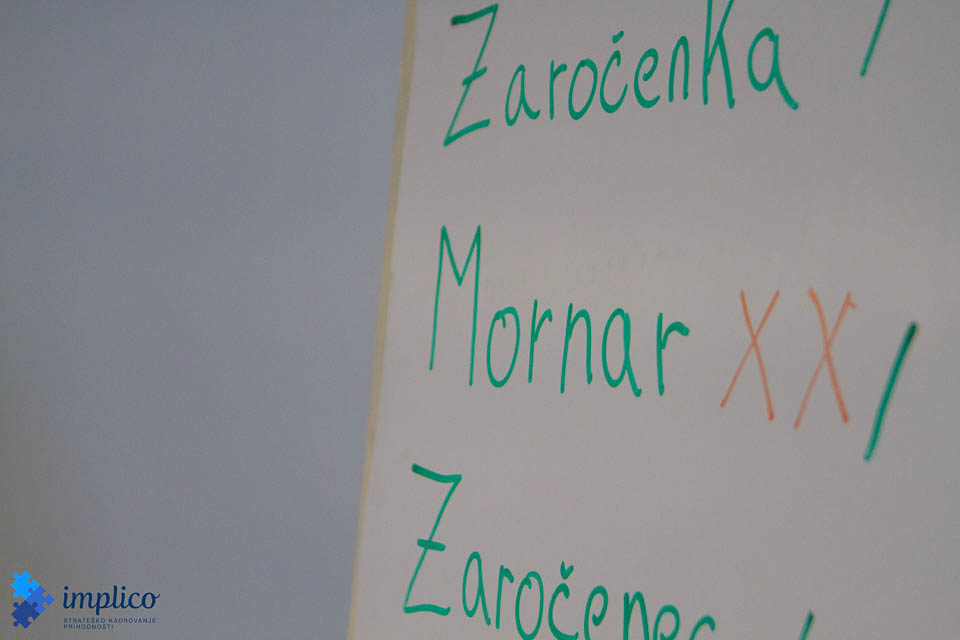 Zaročenka /
Mornar XX/
Zaročenec /
implico
STRATEŠKO KADROVANJE
PRIHODNOSTI